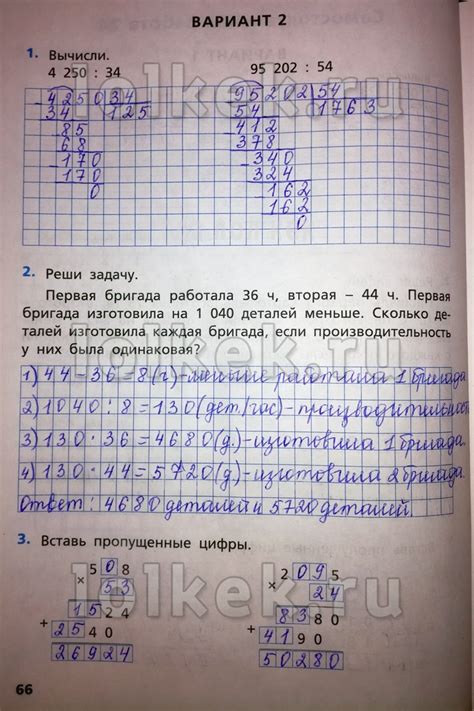 ВАРИАНТ 2
1. Вычисли.
4 250 : 34 95 202 : 54
4250 34 95202 54
34 125 54 1763
85 412
68 378
170 340
170 324
0 162
162
0
2. Реши задачу.
Первая бригада работала 36 ч, вторая – 44 ч. Первая
бригада изготовила на 1 040 деталей меньше. Сколько де-
талей изготовила каждая бригада, если производительность
у них была одинаковая?
1) 44-36=8(ч)-меньше работала 1 бригада
2) 1040:8=130(дет./час)-производительность
3) 130·36=4680(д.)-изготовила 1 бригада.
4) 130·44=5720(д.)-изготовила 2 бригада.
Ответ: 4680 деталей и 5720 деталей.
3. Вставь пропущенные цифры.
508 2095
× 53 × 24
1524 8380
+ 2540 + 4190
26924 50280
66
lolkek.ru
lolkek.ru
lolkek.ru